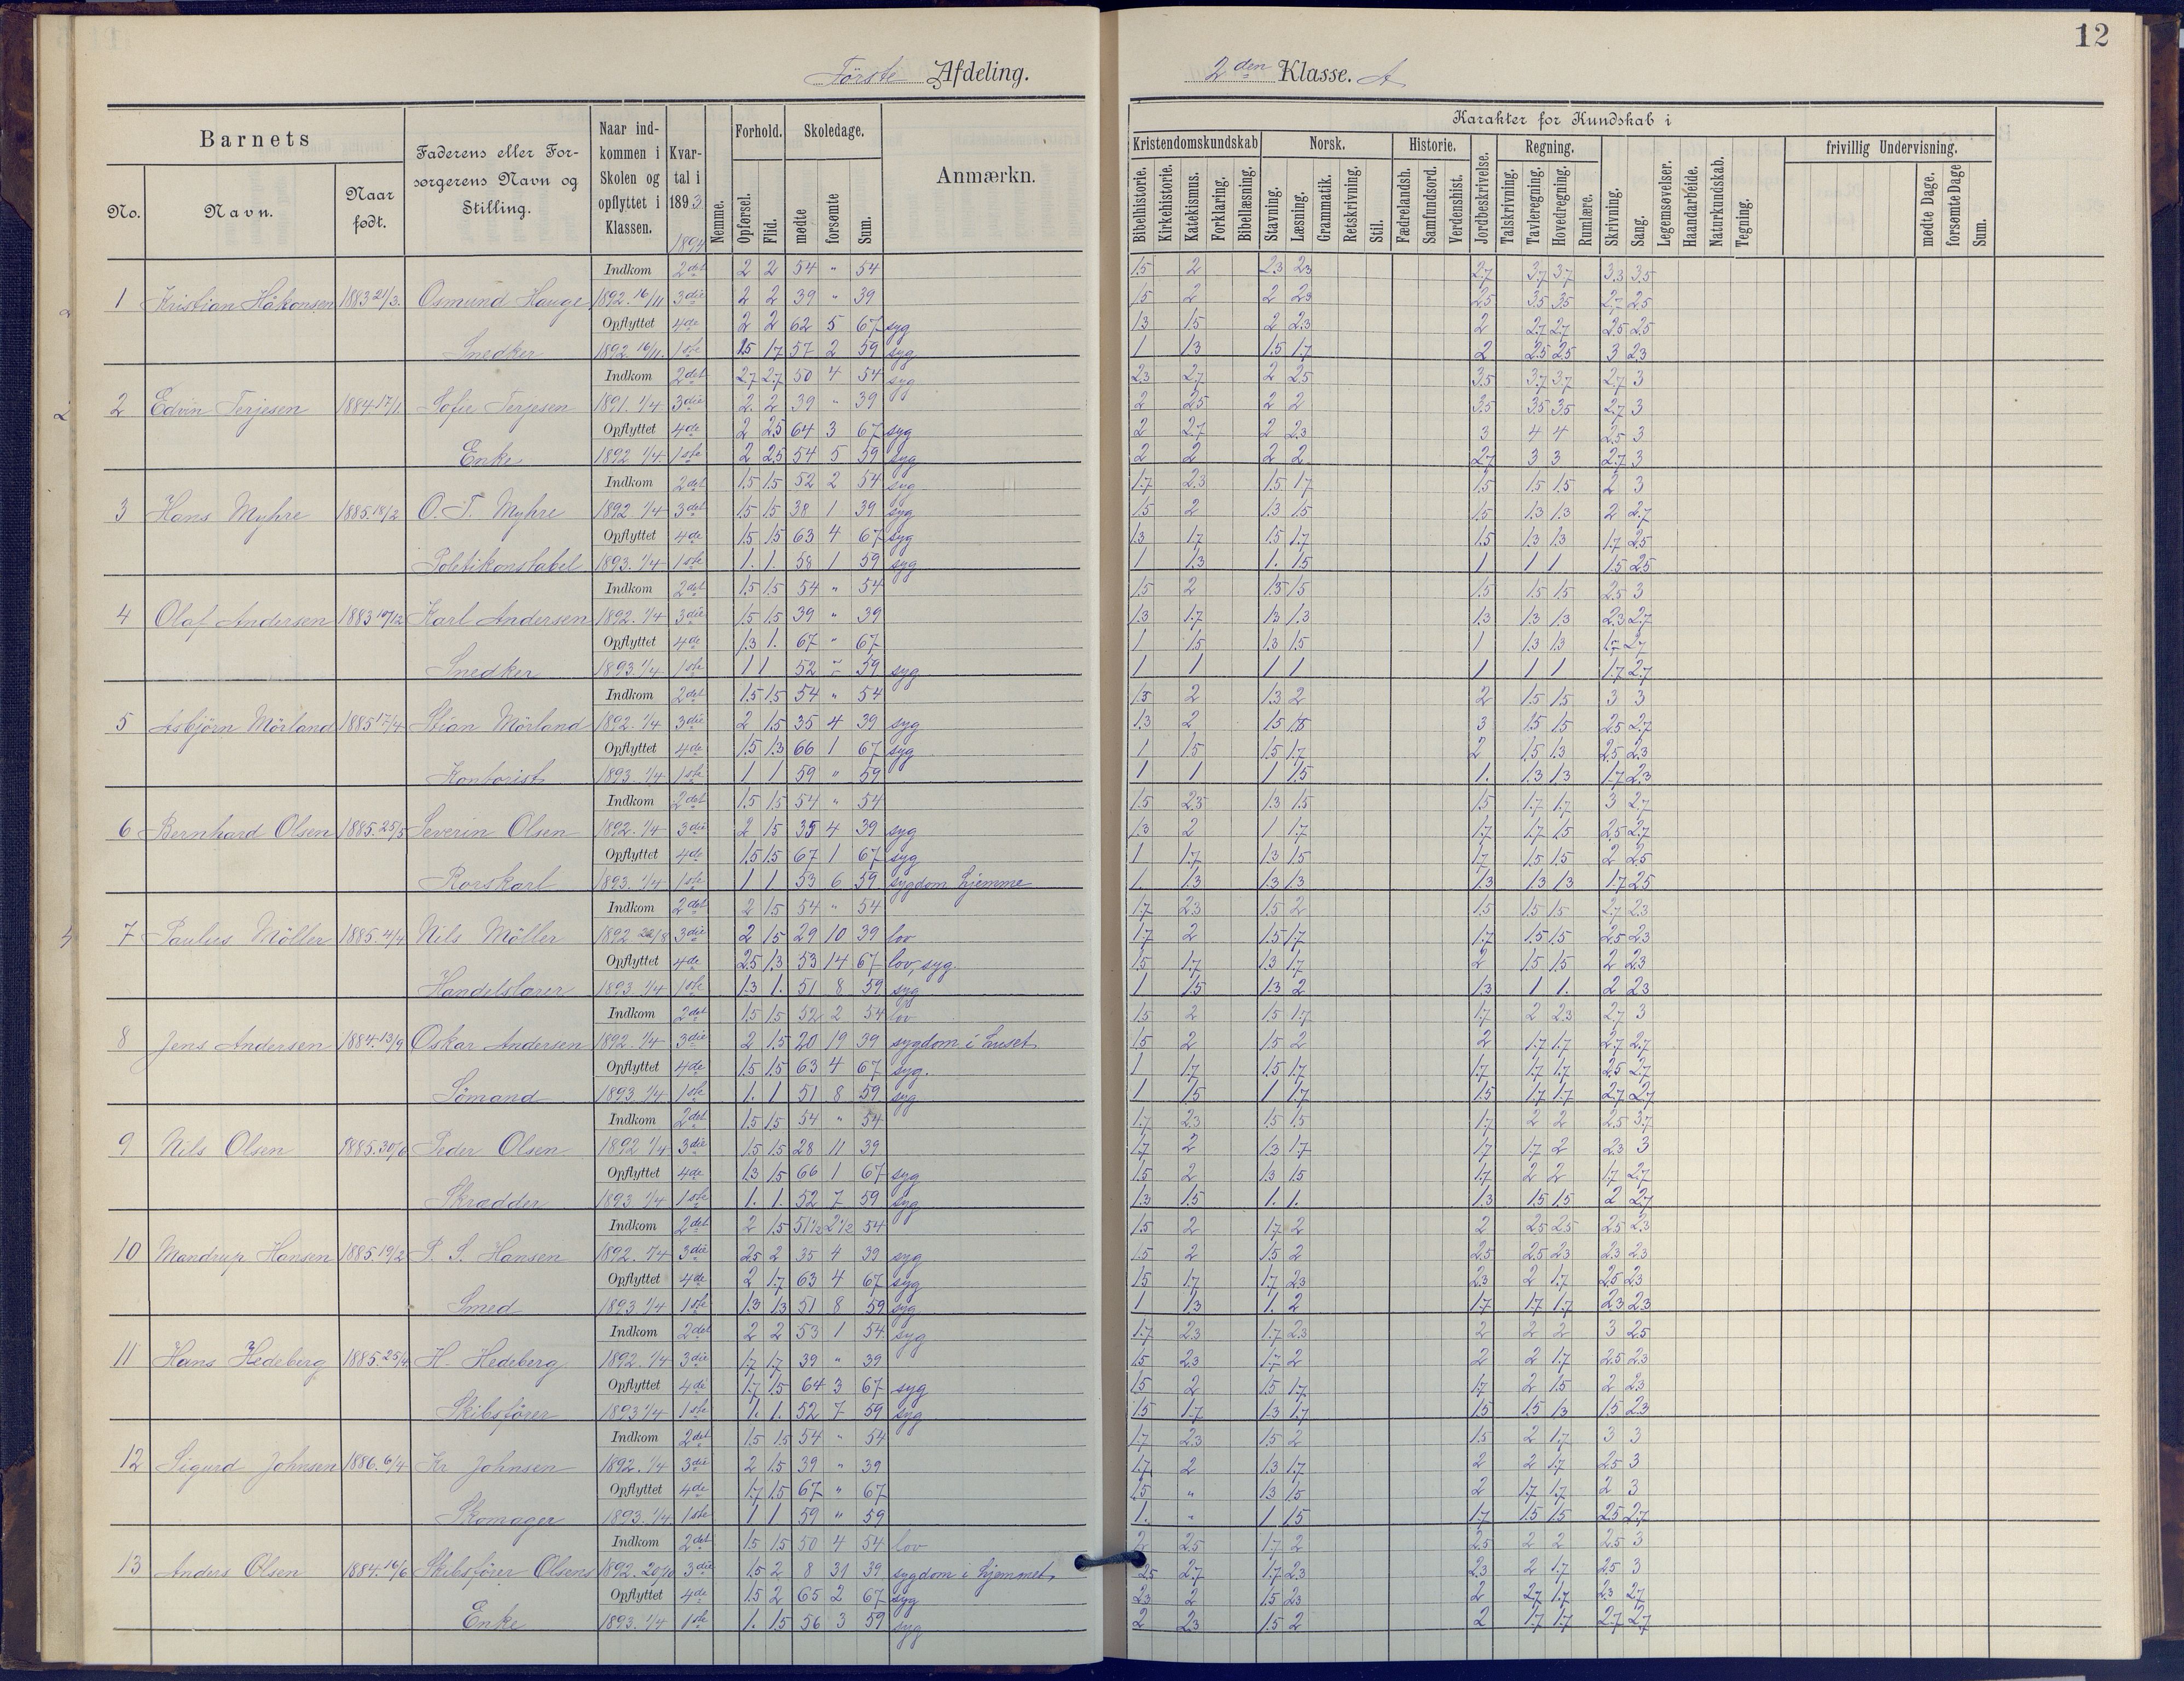 12
Förste Afdeling.
2den Klasse. A
Barnets
No.
Navn.
Naar født.
Faderens eller Forsørgerens Navn og Stilling.
Naar indkommen i Skolen og opflyttet i Klassen.
Kvartal i 1893
1894
Nemme.
Forhold.
Opførsel.
Flid.
Skoledage.
mødte
forsømte
Sum.
Anmærkn.
Karakter for Kundskab i
Kristendomskundskab
Bibelhistorie.
Kirkehistorie.
Katekismus.
Forklaring.
Bibellæsning.
Norsk.
Stavning.
Læsning.
Grammatik.
Retskrivning.
Stil.
Historie.
Fædrelandsh.
Samfundsord.
Verdenshist.
Jordbeskrivelse.
Regning.
Talskrivning.
Tavleregning.
Hovedregning.
Rumlære.
Skrivning.
Sang.
Legemsøvelser.
Haandarbeide.
Naturkundskab.
Tegning.
frivillig Undervisning.
mødte Dage.
forsømte Dage
Sum.
Indkom 2det 2 2 54 " 54 1.5 2 2.3 2.3 2.7 3.7 3.7 3.3 3.5
1 Kristian Håkonsen 1883 21/3. Osmund Hauge 1892. 16/11 3die 2 2 39 " 39 1.5 2 2 2.3 2.5 3.5 3.5 2.7 2.5
Opflyttet 4de 2 2 62 5 67 syg 1.3 1.5 2 2.3 2 2.7 2.7 2.5 2.5
Snedker 1892. 16/11. 1ste 1.5 1.7 57 2 59 syg 1 1.3 1.5 1.7 2 2.5 2.5 3 2.3
Indkom 2det 2.7 2.7 50 4 54 syg 2.3 2.7 2 2.5 3.5 3.7 3.7 2.7 3
2 Edvin Terjesen 1884 17/1 Sofie Terjesen 1891. 1/4 3die 2. 2 39 " 39 2 2.5 2 2 3.5 3.5 3.5 2.7 3
Opflyttet 4de 2 2.5 64 3 67 syg 2 2.7 2 2.3 3 4 4 2.5 3
Enke 1892 1/4. 1ste 2 2.5 54 5 59 syg 2 2 2 2 2.7 3 3 2.7 3
Indkom 2det 1.5 1.5 52 2 54 syg 1.7 2.3 1.5 1.7 1.5 1.5 1.5 2 3
3 Hans Myhre 1885. 18/2 O. T. Myhre 1892 1/4 3det 1.5 1.5 38 1 39 syg 1.5 2 1.3 1.5 1.5 1.3 1.3 2 2.7
Opflyttet 4de 1.5 1.5 63 4 67 syg 1.3 1.7 1.5 1.7 1.5 1.3 1.3 1.7 2.5
Politikonstabel 1893. 1/4 1ste 1. 1. 58 1 59 syg 1 1.3 1. 1.5 1 1 1 1.5 2.5
Indkom 2det 1.5 1.5 54 " 54 1.5 2 1.5 1.5 1.5 1.5 1.5 2.5 3
4 Olaf Andersen 1883 19/12 Karl Andersen 1892. 1/4 3die 1.5 1.5 39 " 39 1.3 1.7 1.3 1.3 1.3 1.3 1.3 2.3 2.7
Opflyttet 4de 1.3 1. 67 " 67 1 1.5 1.3 1.5 1 1.3 1.3 1.7 2.7
Snedker 1893. 1/4 1ste 1 1 52 7 59 syg 1 1 1 1 1 1 1 1.7 2.7
Indkom 2det 1.5 1.5 54 " 54 1.5 2 1.3 2 2 1.5 1.5 3 3
5 Asbjörn Mörland 1885 17/4 Stian Mörland 1892. 1/4 3die 2 1.5 35 4 39 syg 1.3 2 1.5 1.5 3 1.5 1.5 2.5 2.7
Opflyttet 4de 1.5 1.3 66 1 67 syg 1 1.5 1.5 1.7 2 1.5 1.3 2.5 2.3
Kontorist 1893. 1/4 1ste 1 1 59 " 59 1 1 1 1.5 1. 1.3 1.3 1.7 2.3
Indkom 2det 1.5 1.5 54 " 54 1.5 2.3 1.3 1.5 1.5 1.7 1.7 3 2.7
6 Bernhard Olsen 1885. 25/5 Severin Olsen 1892. 1/4 3die 2 1.5 35 4 39 syg 1.3 2 1 1.7 1.7 1.7 1.5 2.5 2.7
Opflyttet 4de 1.5 1.5 67 1 67 syg 1 1.7 1.3 1.5 1.7 1.5 1.5 2 2.5
Rorskarl 1893. 1/4 1ste 1 1 53 6 59 sygdom hjemme 1. 1.3 1.3 1.3 1.3 1.3 1.3 1.7 2.5
Indkom 2det 2 1.5 54 " 54 1.7 2.3 1.5 2 1.5 1.5 1.5 2.7 2.3
7 Paulus Möller 1885. 4/4 Nils Möller 1892 22/8 3die 2 1.5 29 10 39 lov 1.7 2 1.5 1.7 1.7 1.5 1.5 2.5 2.3
Opflyttet 4de 2.5 1.3 53 14 67 lov, syg. 1.5 1.7 1.3 1.7 2 1.5 1.5 2 2.3
Handelslærer 1893. 1/4 1ste 1.3 1. 51 8 59 syg 1 1.5 1.3 2 1.3 1 1. 2 2.3
Indkom 2det 1.5 1.5 52 2 54 lov 1.5 2 1.5 1.7 1.7 2 2.3 2.7 3
8 Jens Andersen 1884. 13/9 Oskar Andersen 1892. 1/4 3die 2 1.5 20 19 39 sygdom i huset 1.5 2 1.5 2 2 1.7 1.7 2.7 2.7
Opflyttet 4de 1.5 1.5 63 4 67 syg. 1 1.7 1.5 1.7 1.7 1.7 1.7 2.5 2.7
Sömand 1893. 1/4 1ste 1. 1 51 8 59 syg 1 1.5 1 1.7 1.5 1.7 1.7 2.7 2.7
Indkom 2det 1.5 1.5 54 " 54 1.7 2.3 1.5 1.5 1.7 2 2 2.5 3.7
9 Nils Olsen 1885. 30/6 Peder Olsen 1892 1/4 3die 1.5 1.5 28 11 39 1.7 2 1.3 1.7 1.7 1.7 2 2.3 3
Opflyttet 4de 1.3 1.5 66 1 67 syg 1.5 2 1.3 1.5 1.7 2 2 1.7 2.7
Skrædder 1893. 1/4 1ste 1. 1. 52 7 59 syg 1.3 1.5 1. 1. 1.3 1.5 1.5 2 2.7
Indkom 2det 2 1.5 51½ 2½ 54 1.5 2 1.7 2 2 2.5 2.5 2.5 2.3
10 Mandrup Hansen 1885. 19/2 P. S. Hansen 1892. 1/4 3die 2.5 2 35 4 39 syg 1.5 2 1.5 2 2.5 2.5 2.3 2.3 2.3
Opflyttet 4de 2 1.7 63 4 67 syg 1.5 1.7 1.7 2.3 2.3 2 1.7 2.5 2.3
Smed 1893 1/4 1ste 1.3 1.3 51 8 59 syg 1 1.3 1. 2 1.7 1.7 1.7 2.3 2.3
Indkom 2det 2 2 53 1 54 syg 1.7 2.3 1.7 2.3 2 2 2 3 2.5
11 Hans Hedeberg 1885. 25/4 H. Hedeberg 1892. 1/4 3die 1.7 1.7 39 " 39 1.5 2.3 1.7 2 2 2 1.7 2.5 2.3
Opflyttet 4de 1.7 1.5 64 3 67 syg 1.5 2 1.5 1.7 1.7 2 1.5 2 2.3
Skibsförer 1893 1/4 1ste 1. 1. 52 7 59 syg 1.5 1.7 1.3 1.7 1.5 1.5 1.3 1.5 2.3
Indkom 2det 1.5 1.5 54 " 54 1.7 2.3 1.5 2 1.5 2 1.7 3 3
12 Sigurd Johnsen 1886. 6/4 Kr Johnsen 1892. 1/4 3die 2 1.5 39 " 39 1.7 2 1.3 1.7 2 2 1.7 2.5 3
Opflyttet 4de 1.7 1.5 67 " 67 1.5 " 1.3 1.5 2 1.7 1.7 2 3
Skomager 1893. 1/4 1ste 1 1 59 " 59 1. " 1 1.5 1.7 1.5 1.5 2.5 2.7
Indkom 2det 1.5 1.5 50 4 54 lov 2 2.5 1.7 2 2.5 2 2 2.5 3
13 Anders Olsen 1884. 16/6 Skibsförer Olsens 1892. 20/10 3die 1.5 2 8 31 39 sygdom i hjemmet 2.5 2.7 1.7 2.3 2.3 2 1.7 2.5 3
Opflyttet 4de 1.5 2 65 2 67 syg 2.3 2 1.5 2.3 2 2.7 1.7 2.3 2.7
Enke 1893. 1/4 1ste 1. 1.5 56 3 59 syg 2 2.3 1.5 2 2 1.7 1.7 2.7 2.7